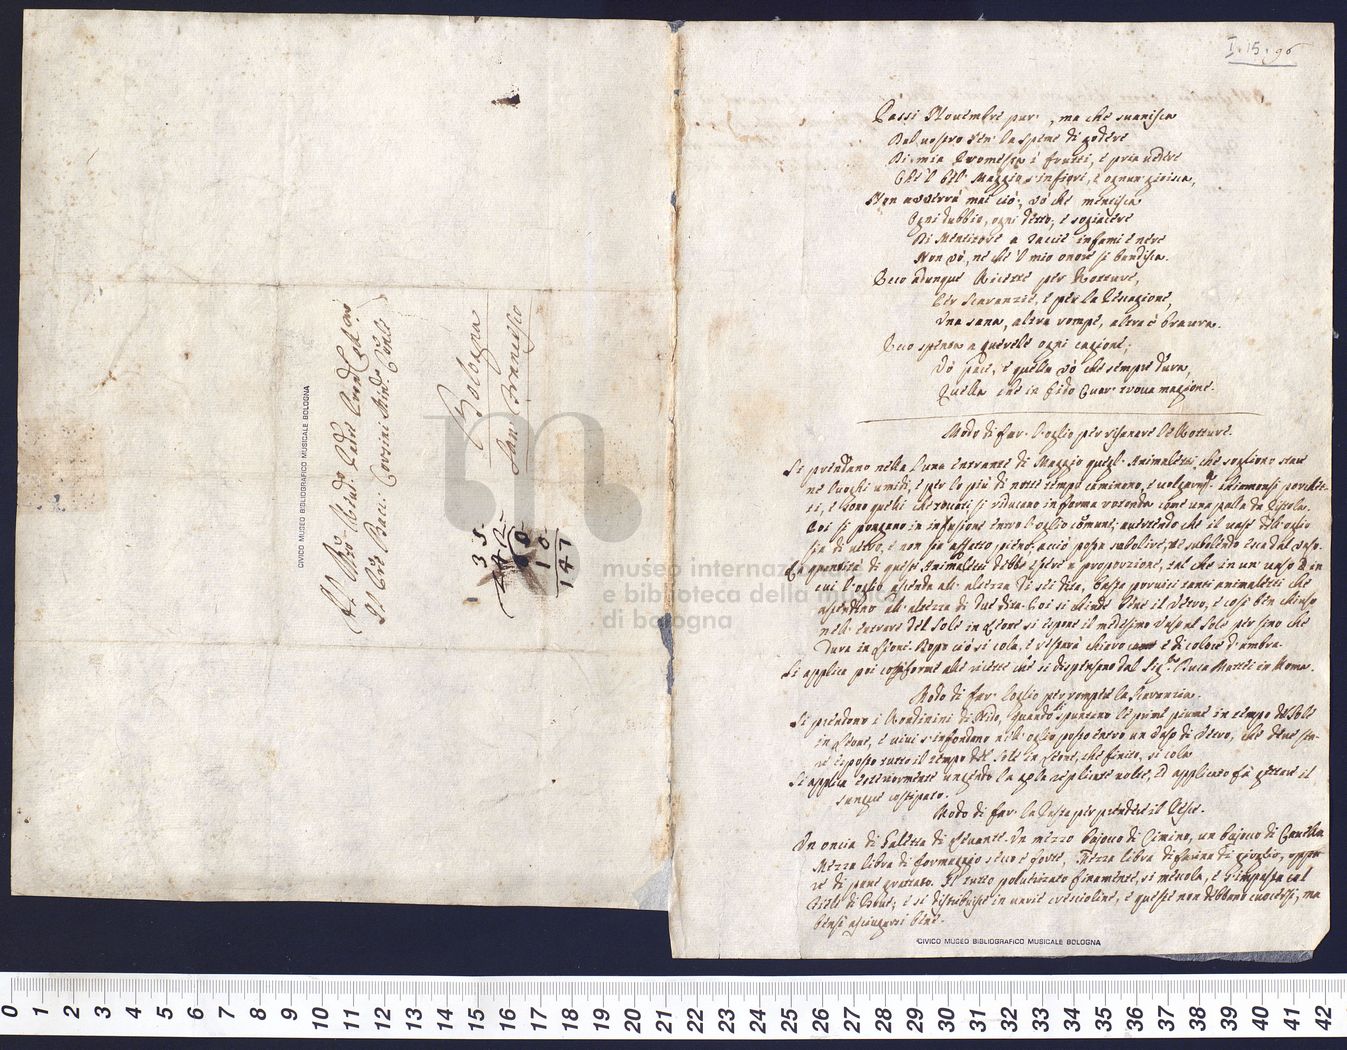 I. 15. 96
Passi Novembre pur, ma che svanisca
Dal vostro sen' la speme di godere
Di mia promessa i frutti, e pria vedere
Che 'l bel Maggio s'infiori, e ognun gioisca,
Non avverrà mai ciò, vò che mentisca
Ogni dubbio, ogni detto, e sogiacere
Di Mentitore a taccie infami e nere
Non vò, nè che 'l mio onore si bandisca.
Ecco adunque Ricette per Rotture,
Per Scaranzie, e per la
Una sana, altra rompe, altra è bravura.
Ecco spenta a querele ogni cagione;
Vò pace, e quella vò che sempre dura,
Quella che in fido Cuor trova magione.
Modo di far l'oglio per risanare le Rotture.
Si prendano nella Luna entrante di Maggio quegl' Animaletti che sogliono stare
ne luoghi umidi, e per lo più di notte tempo caminano, e
ti, e sono quelli che toccati si riducano in forma rotonda come una palla da Pistola.
Poi si pongano in infusione entro l'oglio comune; avertendo che il vase dell'oglio
sia di vetro, e non sia affatto pieno, acciò possa subolire, ne subolendo esca dal vaso.
La quantità di questi Animaletti debbe essere a proporzione, tal che in un vaso in
cui l'oglio ascenda all'altezza di sei dita, basta porvici tanti animaletti che
ascendino all'altezza di due dita. Poi si chiude bene il Vetro, e così ben chiuso
nell'entrare del Sole in Leone si espone il medesimo vaso al Sole per fino che
dura in Leone. Dopo ciò si cola, e resterà chiaro e di colore d'ambra.
Si applica poi conforme alle ricette che si dispensano dal Sig.re Duca Mattei in Roma.
Modo di far l'oglio per rompere la Scaranzia.
Si prendono i Rondinini di Nido, quando spuntano le prime piume in tempo del Sole
in Leone, e vivi s'infondano nell'oglio posto entro un Vaso di Vetro, che deve sta-
re esposto tutto il tempo del Sole in Leone, che finito, si cola
Si applica esteriormente ungendo la gola replicate volte, ed applicato fà gettare il
sangue costipato.
Modo di far la Pasta per prendere il Pesce.
Un oncia di Galetta di Levante. Un mezzo bajocco di Cimino, un bajocco di Canella
Mezza libra di formaggio seco e forte, Mezza libra di farina di, oppu-
re di pane grattato. Il tutto polverizato finamente, si mescola, e s'impasta col
di Bove; e si distribuisce in varie crescioline, e queste non debbano cuocersi, ma
bensì asciugarsi bene.
CIVICO MUSEO BIBLIOGRAFICO MUSICALE BOLOGNA
Bologna
San Francesco
CIVICO MUSEO BIBLIOGRAFICO MUSICALE BOLOGNA
museo internazionale
e biblioteca della musica
di bologna
0 1 2 3 4 5 6 7 8 9 10 11 12 13 14 15 16 17 18 19 20 21 22 23 24 25 26 27 28 29 30 31 32 33 34 35 36 37 38 39 40 41 42